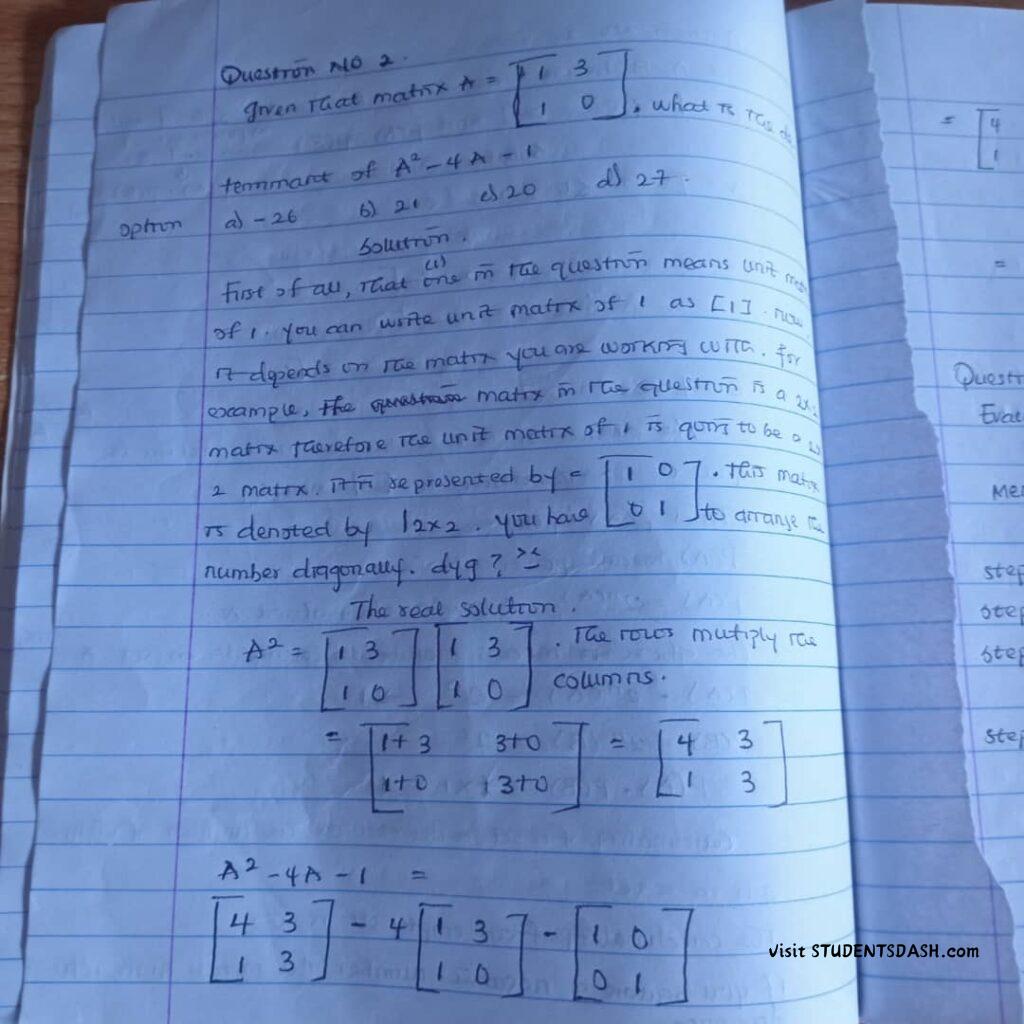 Question NO 2.
given that matrix A = [1 3
1 0], what is the de
terminant of A² - 4A - 1
option a) -26 b) 21 c) 20 d) 27.
Solution.
First of all, that one (1) in the question means unit
of 1. you can write unit matrix of 1 as [1]. now
it depends on the matrix you are working with. for
example, the matrix in the question is a 2x2
matrix therefore the unit matrix of 1 is going to be a
2 matrix. It is represented by = [1 0
0 1]. this matrix
is denoted by I2x2. you have to arrange the
number diagonally. dyg?
The real solution.
A² = [1 3
1 0] [1 3
1 0] : The rows multiply the
columns.
= [1+3 3+0
1+0 3+0] = [4 3
1 3]
A² - 4A - 1 =
[4 3
1 3] - 4 [1 3
1 0] - [1 0
0 1]
= [4
1
=
Quest
Eval
Me
step
step
step
step
Visit STUDENTSDASH.com